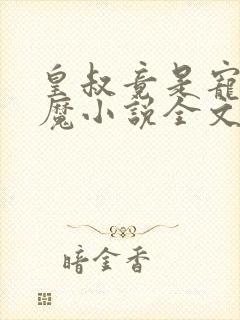 皇叔竟是寵
魔小説全文
暗金香